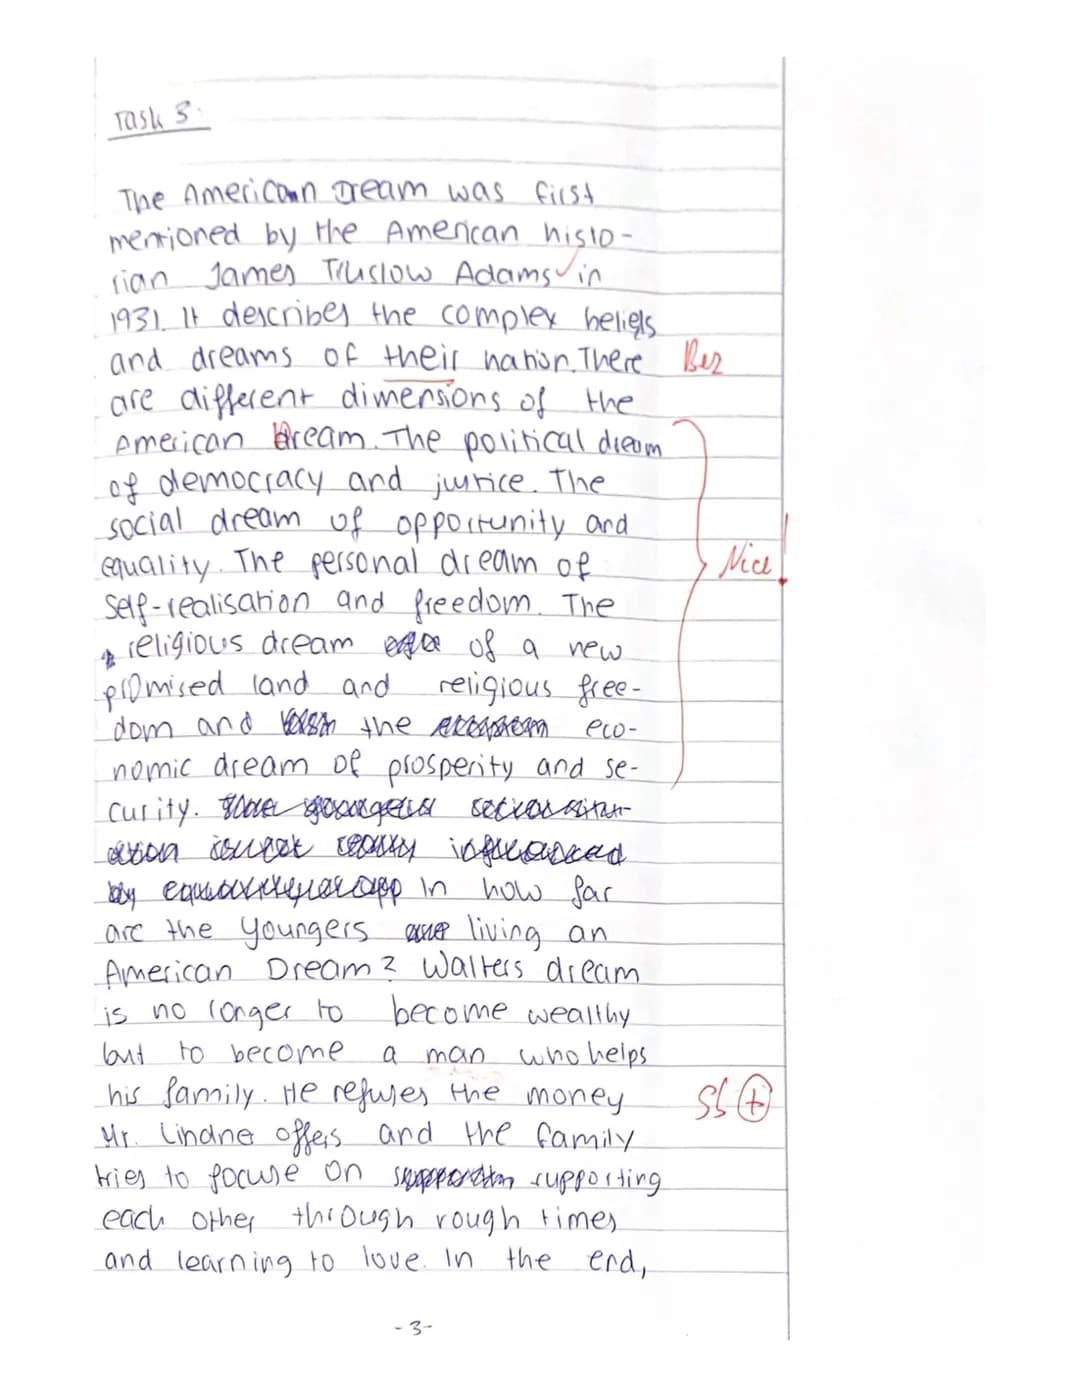 Task 3:
The American Dream was first
mentioned by the American histo-
rian James Truslow Adams in
1931. It describes the complex beliefs
and dreams of their nation. There Bez
are different dimensions of the
American Dream. The political dream
of democracy and justice. The
social dream of opportunity and
equality. The personal dream of Nice!
self-realisation and freedom. The
religious dream of a new
promised land and religious free-
dom and the eco-
nomic dream of prosperity and se-
curity.
In how far
are the Youngers living an
American Dream? Walters dream
is no longer to become wealthy
but to become a man who helps
his family. He refuses the money Sb +
Mr. Lindne offers and the family
tries to focuse on supporting
each other through rough times
and learning to love. In the end,
-3-